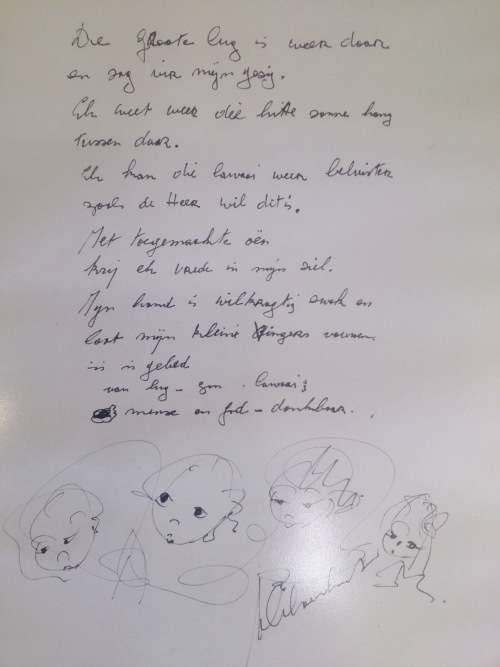 Die groote lug is weer daar
en sag vir mijn gesig.
Ek weet weer die hitte sonne hang
tussen daar.
Ek kan die lawaai weer beluister
zoals de Heer wil dit is.
Met toegemaakte oën
krij ek vrede in mijn siel.
Mijn hand is wilkragtig swak en
laat mijn kleine vingers vouwen
is gebed
van lug - son - lawaai
mense en God - dankbaar.